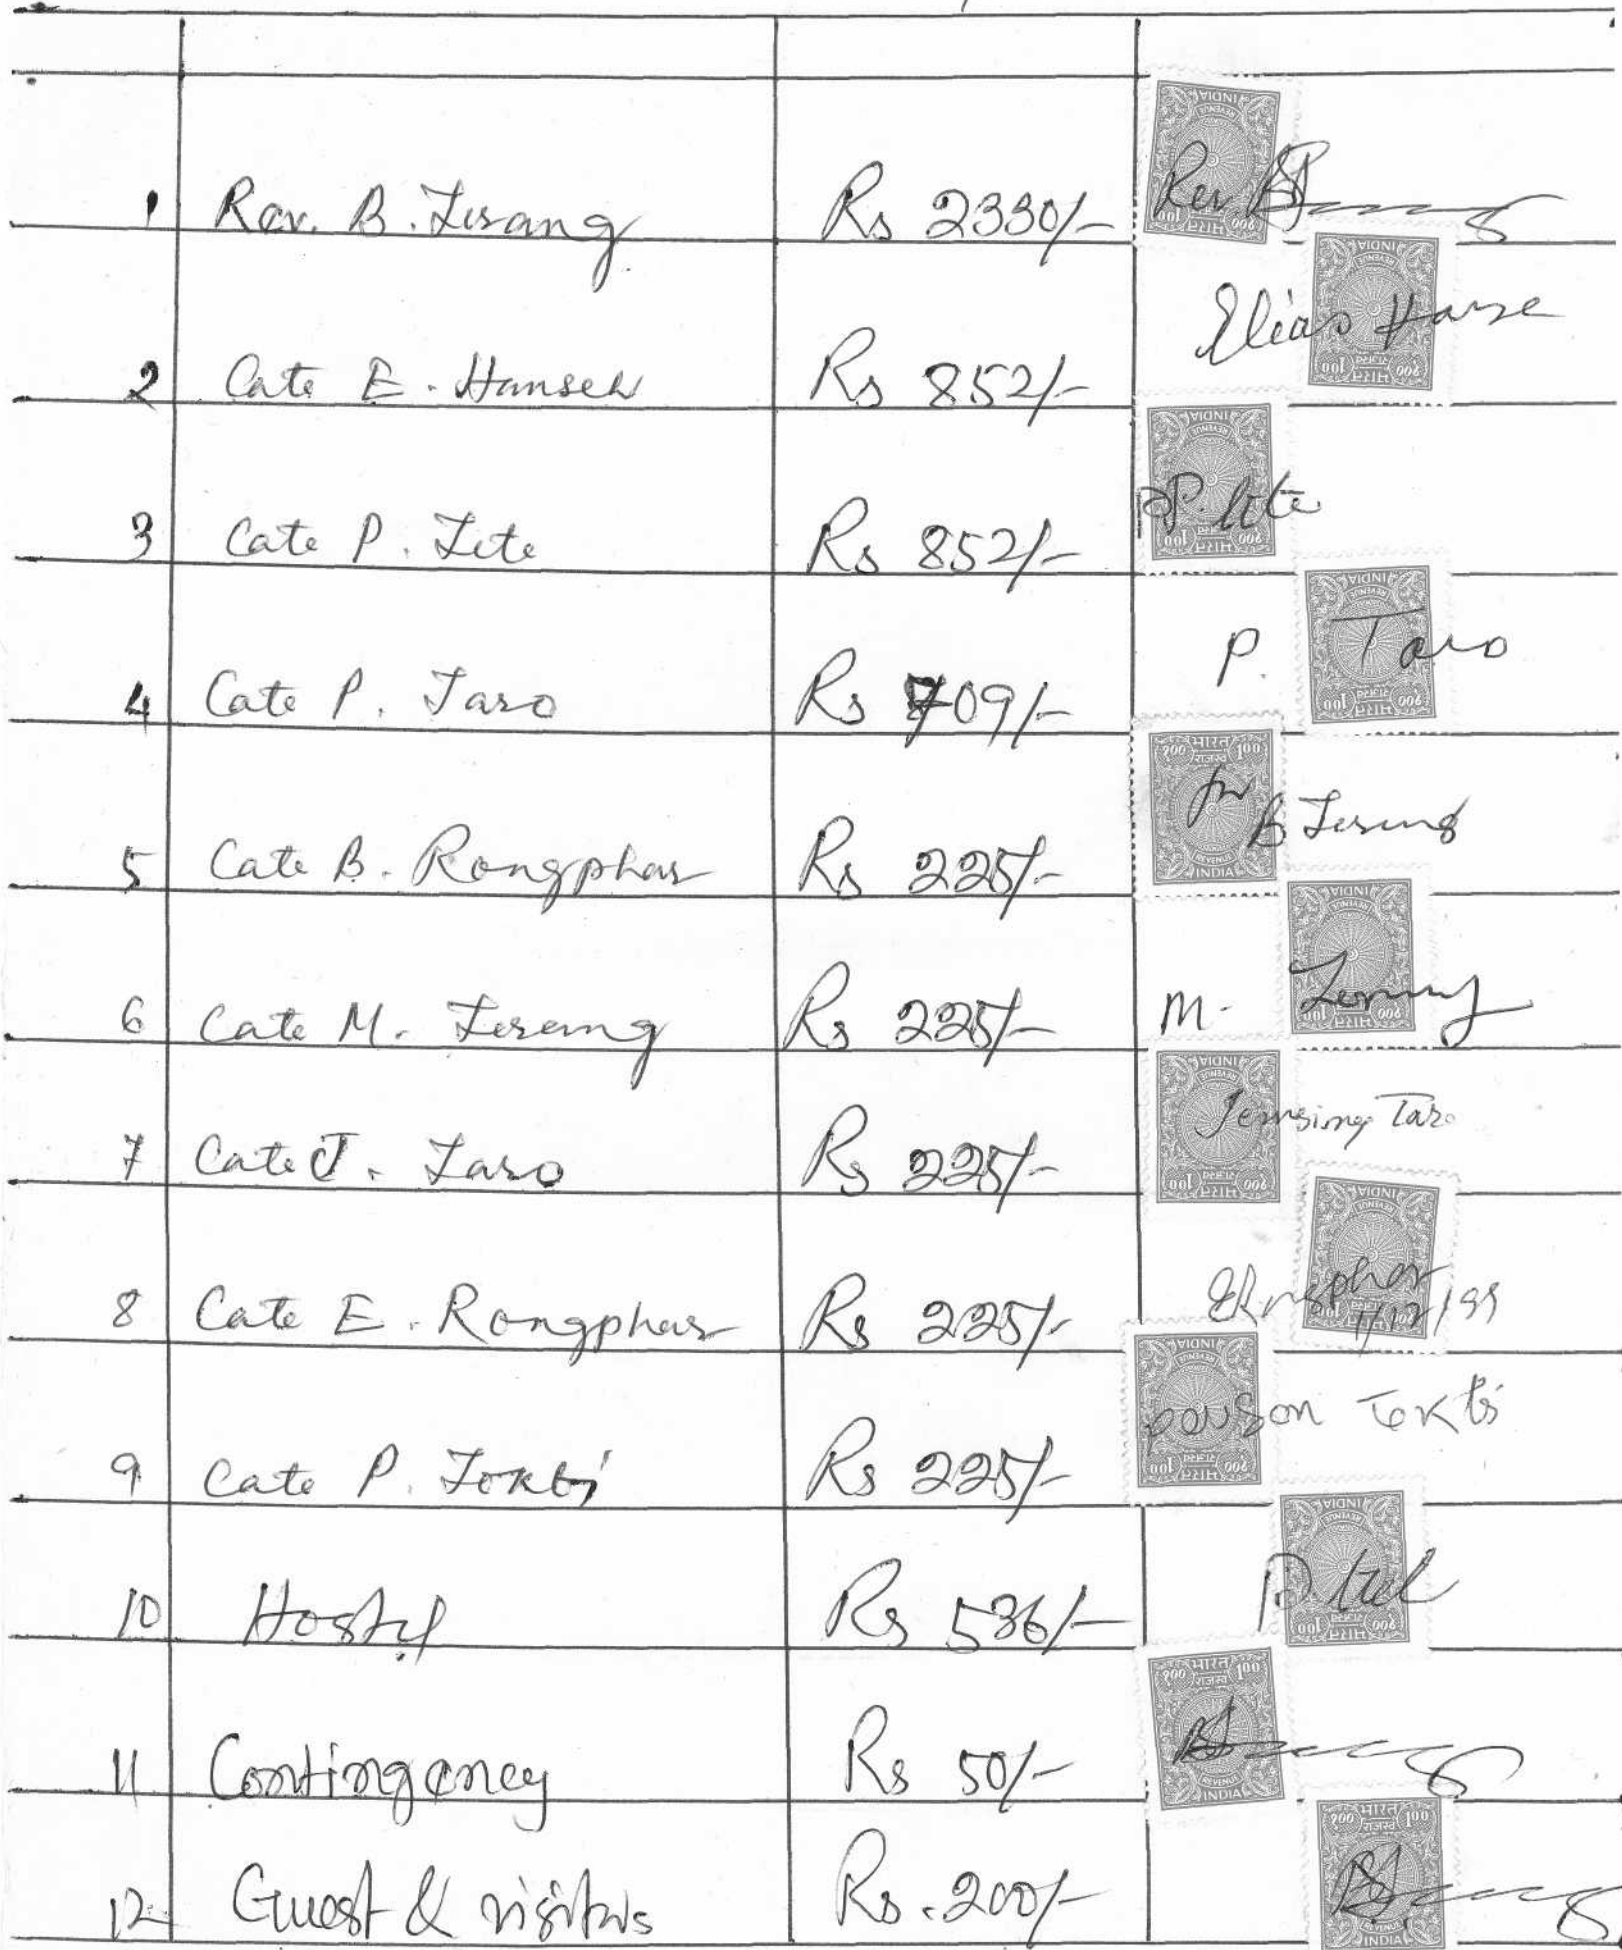 1 Rev. B. Terang Rs 2330/- Rev B
2 Cate E. Hansek Rs 852/- Elias Hanse
3 Cate P. Tete Rs 852/- P. tete
4 Cate P. Taro Rs 709/- P. Taro
5 Cate B. Rongphar Rs 225/- for B Terang
6 Cate M. Terang Rs 225/- M. Terang
7 Cate J. Taro Rs 225/- Jemsing Taro
8 Cate E. Rongphar Rs 225/- ERongphar 1/12/99
9 Cate P. Tokbi Rs 225/- Tokbi
10 Hostel Rs 536/-
11 Contingency Rs 50/-
12 Guest & visitors Rs. 200/-
भारत राजस्व १०० 1.00 REVENUE INDIA